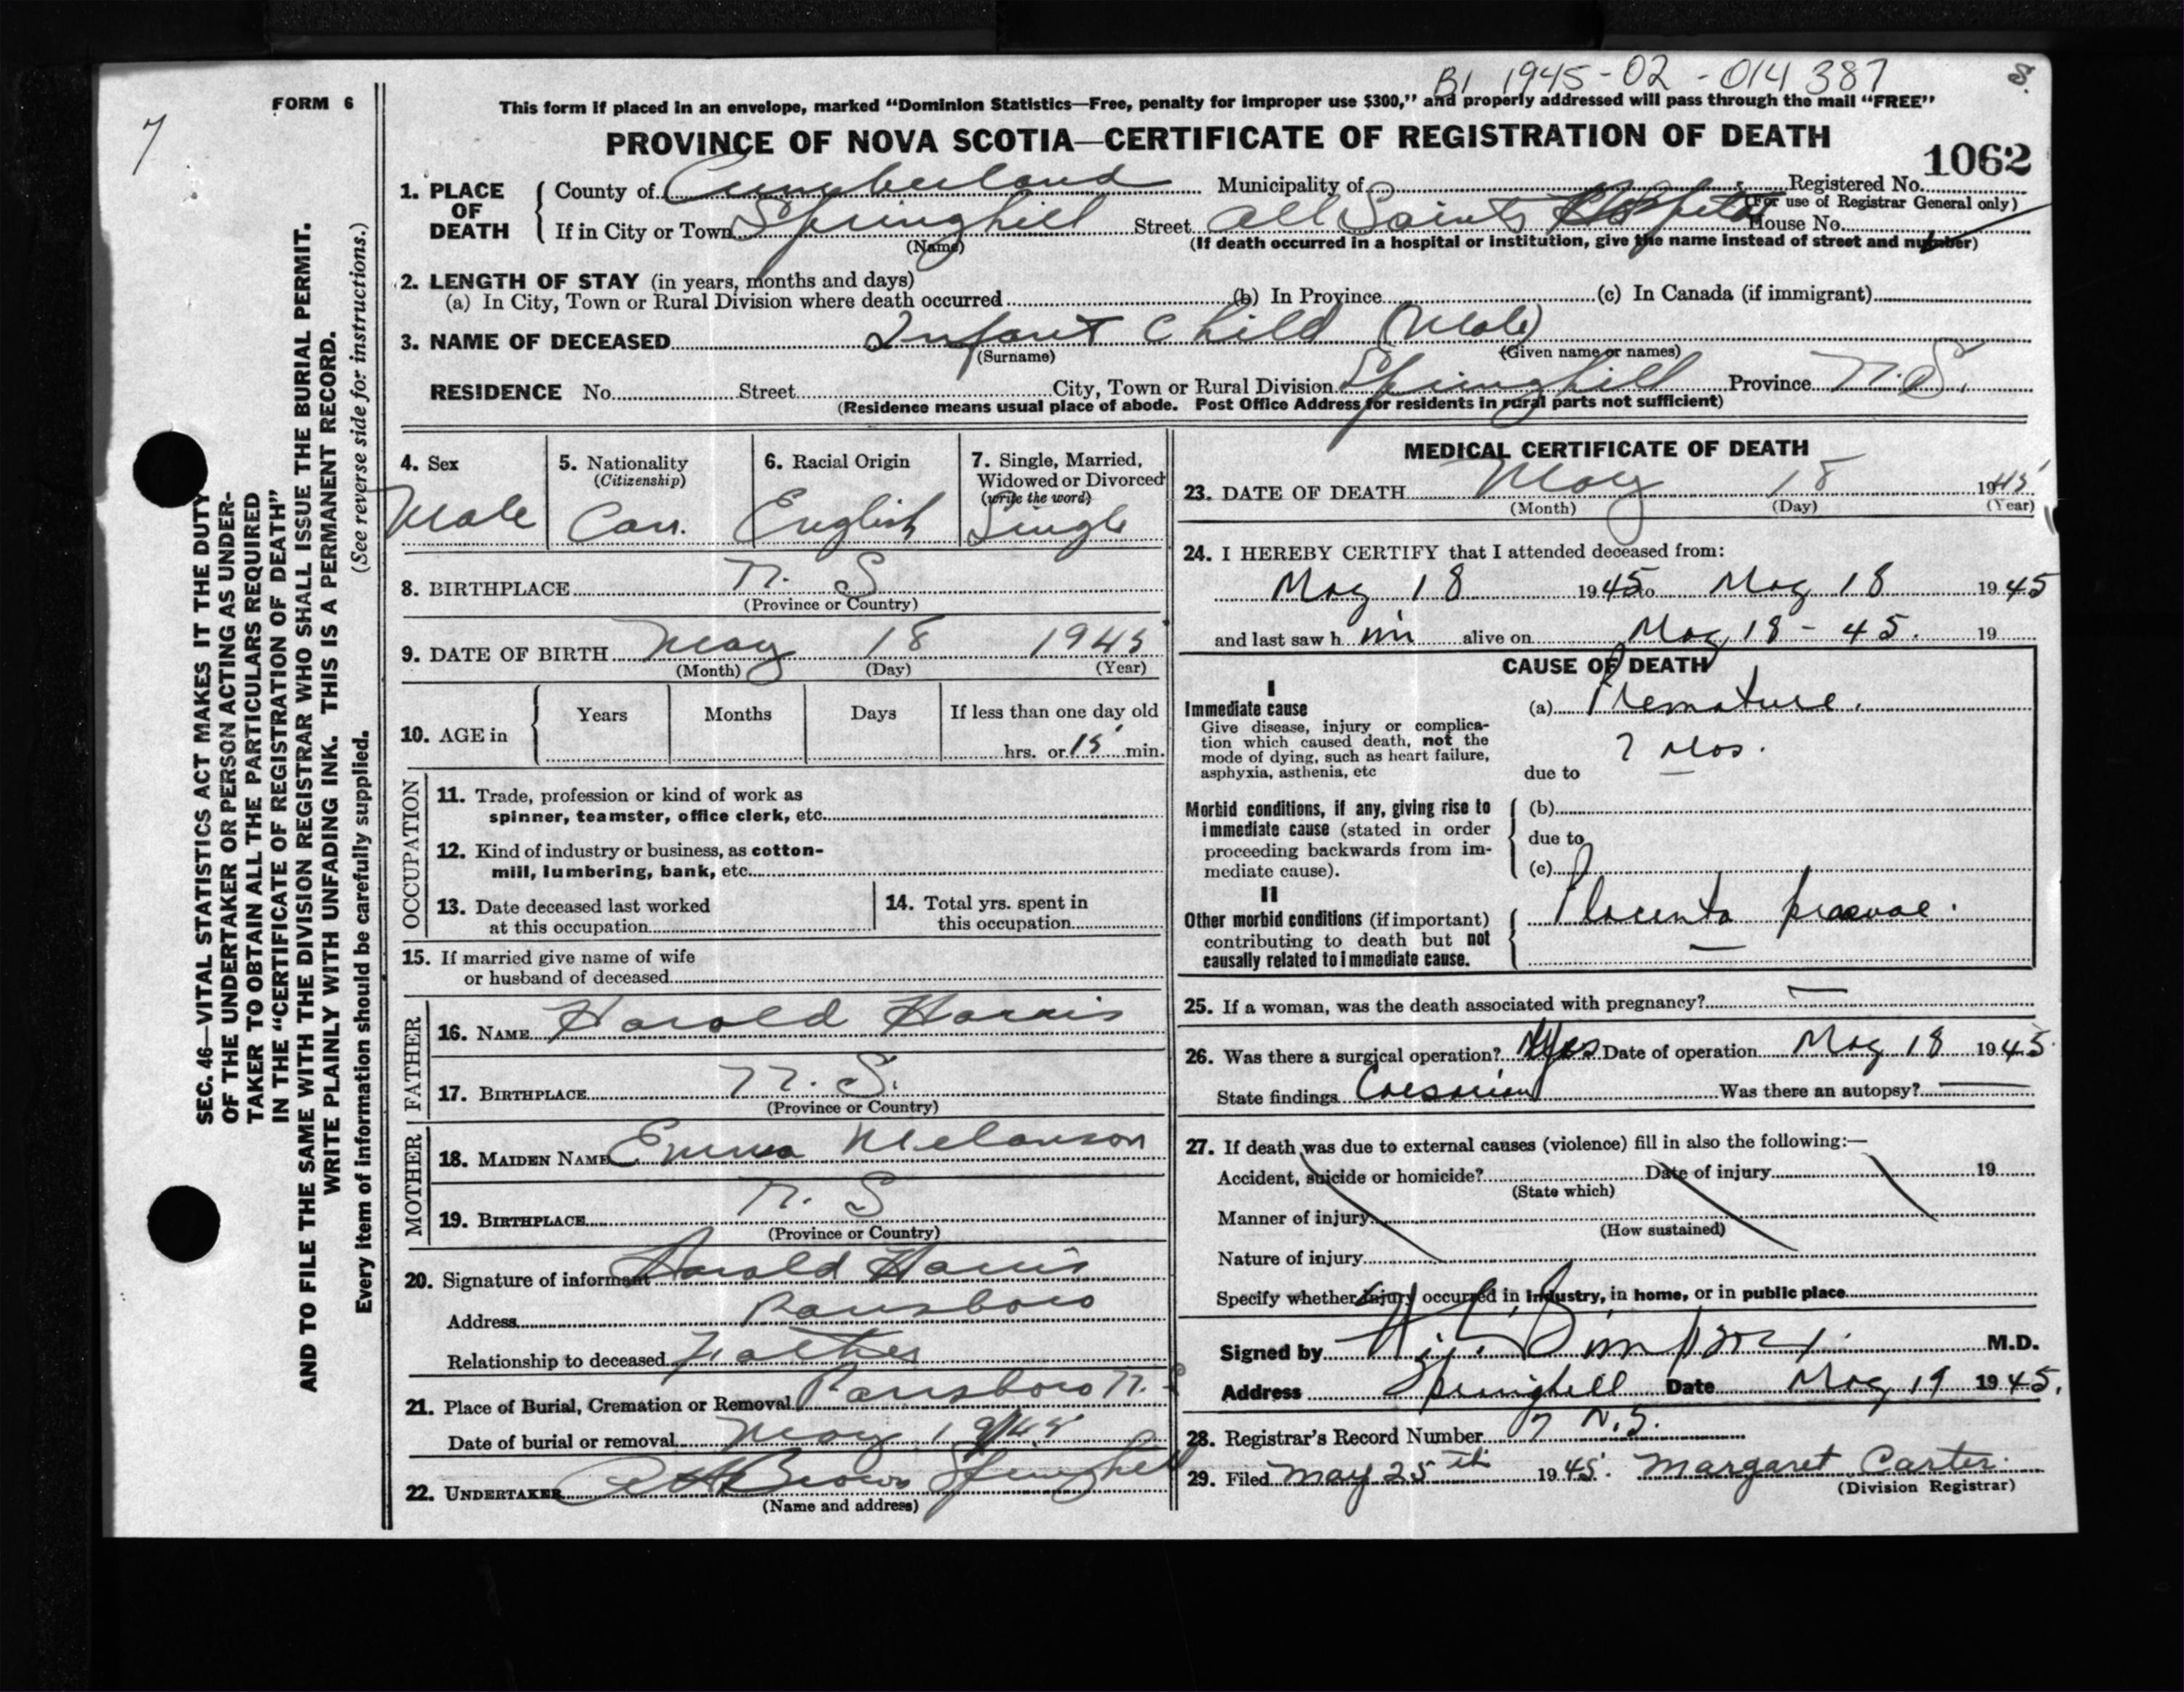 B1 1945-02-014387
8
FORM 6
7
This form if placed in an envelope, marked "Dominion Statistics—Free, penalty for improper use $300," and properly addressed will pass through the mail "FREE"
PROVINCE OF NOVA SCOTIA—CERTIFICATE OF REGISTRATION OF DEATH
1062
1. PLACE OF DEATH
County of Cumberland Municipality of Registered No.
(For use of Registrar General only)
If in City or Town Springhill Street All Saints Hospital House No.
(Name)
(If death occurred in a hospital or institution, give the name instead of street and number)
2. LENGTH OF STAY (in years, months and days)
(a) In City, Town or Rural Division where death occurred (b) In Province (c) In Canada (if immigrant)
3. NAME OF DECEASED Infant Child (Male)
(Surname) (Given name or names)
RESIDENCE No. Street City, Town or Rural Division Springhill Province N.S.
(Residence means usual place of abode. Post Office Address for residents in rural parts not sufficient)
4. Sex
Male
5. Nationality
(Citizenship)
Can.
6. Racial Origin
English
7. Single, Married,
Widowed or Divorced
(write the word)
Single
8. BIRTHPLACE N. S
(Province or Country)
9. DATE OF BIRTH May 18 1945
(Month) (Day) (Year)
10. AGE in
Years Months Days If less than one day old
hrs. or 15 min.
OCCUPATION
11. Trade, profession or kind of work as
spinner, teamster, office clerk, etc.
12. Kind of industry or business, as cotton-
mill, lumbering, bank, etc.
13. Date deceased last worked
at this occupation
14. Total yrs. spent in
this occupation
15. If married give name of wife
or husband of deceased
FATHER
16. NAME Harold Harris
17. BIRTHPLACE N. S.
(Province or Country)
MOTHER
18. MAIDEN NAME Emma Melanson
19. BIRTHPLACE N. S
(Province or Country)
20. Signature of informant Harold Harris
Address Parrsboro
Relationship to deceased Father
21. Place of Burial, Cremation or Removal Parrsboro N. S
Date of burial or removal May 19/45
22. UNDERTAKER Brown Springhill
(Name and address)
MEDICAL CERTIFICATE OF DEATH
23. DATE OF DEATH May 18 1945
(Month) (Day) (Year)
24. I HEREBY CERTIFY that I attended deceased from:
May 18 1945 to May 18 1945
and last saw h im alive on May 18 - 45. 19
CAUSE OF DEATH
I
Immediate cause
Give disease, injury or complica-
tion which caused death, not the
mode of dying, such as heart failure,
asphyxia, asthenia, etc
(a) Premature.
7 mos.
due to
Morbid conditions, if any, giving rise to
immediate cause (stated in order
proceeding backwards from im-
mediate cause).
(b)
due to
(c)
II
Other morbid conditions (if important)
contributing to death but not
causally related to immediate cause.
Placenta praevae.
25. If a woman, was the death associated with pregnancy? —
26. Was there a surgical operation? Yes Date of operation May 18 1945
State findings Caesarian Was there an autopsy? —
27. If death was due to external causes (violence) fill in also the following:—
Accident, suicide or homicide? Date of injury 19
(State which)
Manner of injury
(How sustained)
Nature of injury
Specify whether injury occurred in industry, in home, or in public place
Signed by Simpson M.D.
Address Springhill Date May 19 1945.
28. Registrar's Record Number 7 N.S.
29. Filed May 25th 1945. Margaret Carter.
(Division Registrar)
SEC. 46—VITAL STATISTICS ACT MAKES IT THE DUTY
OF THE UNDERTAKER OR PERSON ACTING AS UNDER-
TAKER TO OBTAIN ALL THE PARTICULARS REQUIRED
IN THE "CERTIFICATE OF REGISTRATION OF DEATH"
AND TO FILE THE SAME WITH THE DIVISION REGISTRAR WHO SHALL ISSUE THE BURIAL PERMIT.
WRITE PLAINLY WITH UNFADING INK. THIS IS A PERMANENT RECORD.
Every item of information should be carefully supplied. (See reverse side for instructions.)